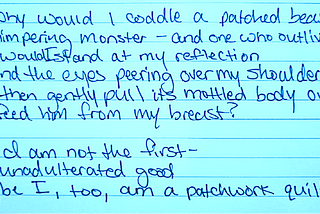 hy would I coddle a patched beas
impering monster - and one who outliv
would I stand at my reflection
nd the eyes peering over my shoulder
then gently pull its mottled body ov
feed him from my breast?
d I am not the first-
unadulterated good
be I, too, am a patchwork quil